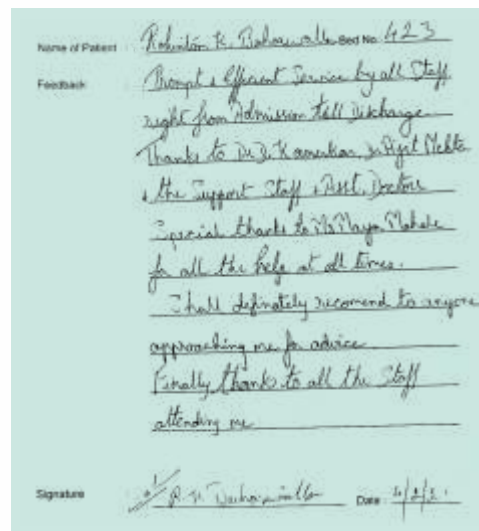 Name of Patient Rohinton K. Bed No. 423
Feedback Prompt & Efficient Service by all Staff
right from Admission till Discharge.
Thanks to Dr. D. Kamerkar, Dr Arjit Mehta
& the Support Staff & Asst. Doctors
Special thanks to Ms Maya
for all the help at all times.
I shall definately recomend to anyone
approaching me for advice
Finally thanks to all the Staff
attending me
Signature R. K. Date 4/2/21